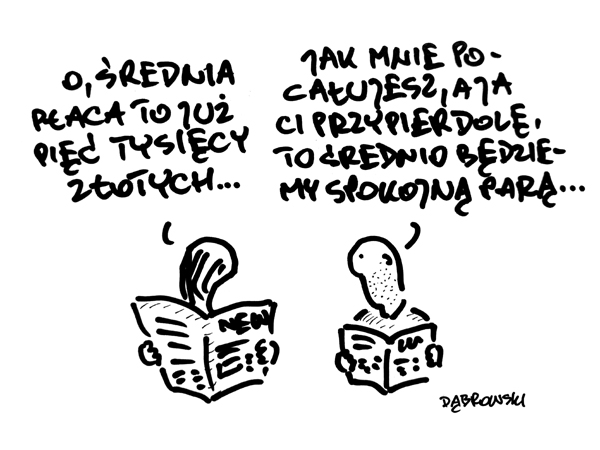 O, ŚREDNIA
PŁACA TO JUŻ
PIĘĆ TYSIĘCY
ZŁOTYCH...
JAK MNIE PO-
CAŁUJESZ, A JA
CI PRZYPIERDOLĘ,
TO ŚREDNIO BĘDZIE-
MY SPOKOJNĄ PARĄ...
NEWW
DĄBROWSKI